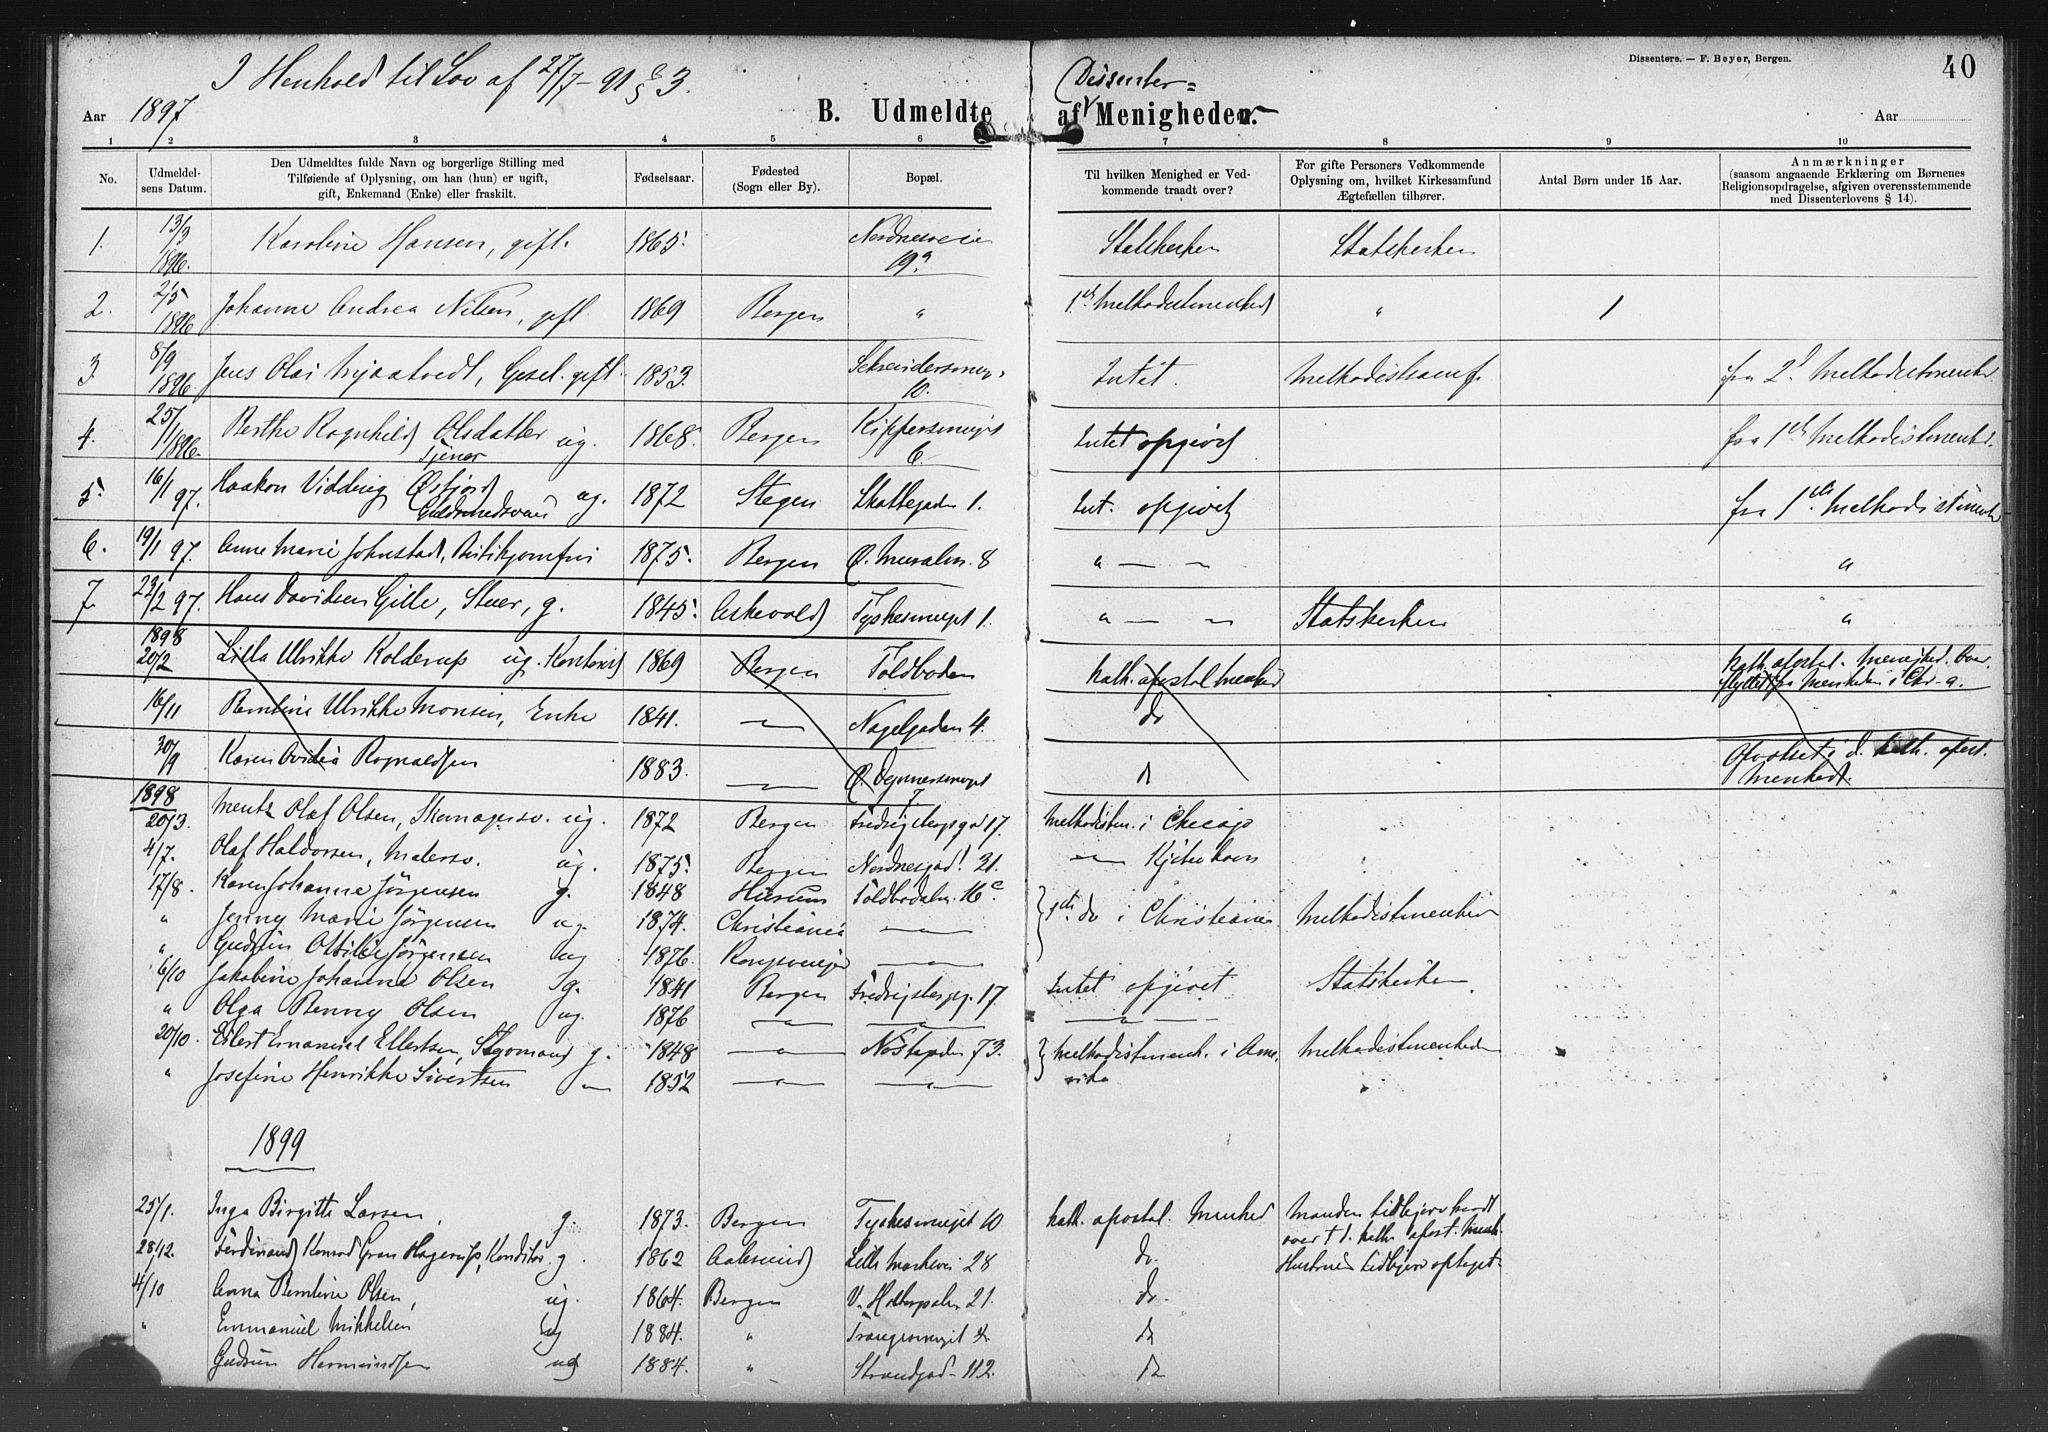 Dissentere. — F. Beyer, Bergen.
40
I Henhold til Lov af 27/7-91 § 3.
Dissenter=
Aar 1897
B. Udmeldte af Menigheden.
Aar
1 2 3 4 5 6 7 8 9 10
No.
Udmeldel-
sens Datum.
Den Udmeldtes fulde Navn og borgerlige Stilling med
Tilføiende af Oplysning, om han (hun) er ugift,
gift, Enkemand (Enke) eller fraskilt.
Fødselsaar.
Fødested
(Sogn eller By).
Bopæl.
Til hvilken Menighed er Ved-
kommende traadt over?
For gifte Personers Vedkommende
Oplysning om, hvilket Kirkesamfund
Ægtefællen tilhører.
Antal Børn under 15 Aar.
Anmærkninger
(saasom angaaende Erklæring om Børnenes
Religionsopdragelse, afgiven overensstemmende
med Dissenterlovens § 14).
1. 13/3 1896. Karoline Hansen, gift. 1865. Nordnesveien 19a Statskirken Statskirken
2. 2/5 1896 Johanne Andrea Nilsen, gift 1869 Bergen " 1ste Methodistmenhed " 1
3. 8/9 1896 Jens Olai, gift. 1853. Skreddersmug. 10. Intet. Methodistsamf. fra 2d Methodistmenhd.
4. 25/11 1896. Berthe Ragnhild Olsdatter ug. 1868. Bergen Kippersmuget 6. Intet opgivet fra 1ste Methodistmenhd.
Tjener
5. 16/1 97. Haakon Østfjord ug. 1872 Stegen Skottegaden 1. Int. opgivet fra 1ste Methodistmenhd
Guldsmedsvend
6. 19/1 97. Anne Marie Johnstad, Butikjomfru 1875. Bergen Ø. Muralm. 8 " — " "
7. 23/2 97. Hans Davidsen Gille, Stuer, g. 1845. Askevold Tyskesmuget 1. " — " Statskirken "
1898
20/2 Lilla Ulrikke Kolderup ug. Kontorist 1869 Bergen Toldboden kath. apostol menhed kath. apostol. Menighed. Over-
flyttet fra Menheden i Chr-a.
16/11 Bentine Ulrikke Monsen, Enke 1841. — " — Nøgelgaden 4. do
30/9 Karen Ovidia Rognaldsen 1883. — " — do Opvokset i d. kath. apost.
Menhed.
1898
20/3. Mentz Olaf Olsen, Skomagersv. ug. 1872 Bergen Fredrigsbergsgd 17. Methodistm. i Chicago
4/7. Olaf Haldorsen, Malersv. ug. 1875. Bergen Nordnesgad. 21. — " — Kjøbenhavn
17/8. Karen Johanne Jørgensen g. 1848 Hurum Toldbodalm. 16c. 1ste do i Christiania Methodistmenhed
" Jenny Marie Jørgensen ug. 1874. Christiania — " —
" Gudrun Ottilie Jørgensen ug 1876 Kongsvinger — " —
6/10 Jakobine Johanne Olsen g. 1841 Bergen Fredrigsbergsg. 17. Intet opgivet Statskirken.
" Olga Benny Olsen ug. 1876 — " — — " — — " —
20/10. Eilert Emanuel Ellertsen, g. 1848 — " — Nøstegaden 73. Methodistmenh. i Ame- Methodistmenheden
rika
" Josefine Henrikke Sivertsen — " — 1852 — " — — " — "
1899
25/1. Inga Birgitte Larsen, g. 1873. Bergen Tyskesmuget 10 kath. apostol. Menhed Manden tidligere traadt
over t. d. kath. apost. Menh.
28/12. Ferdinand Konrad Gran Hagerup, Konditor g. 1862 Aalesund Lille Markevei 28 do. Hustruen tidligere optaget
4/10 Anna Bentine Olsen, ug. 1864. Bergen V. Holbergsalm 21. do.
" Emmanuel Mikkelsen ug 1884. " Trangesmuget 4. do
Gudrun Hermundsen ug 1884. " Strandgad- 112. do